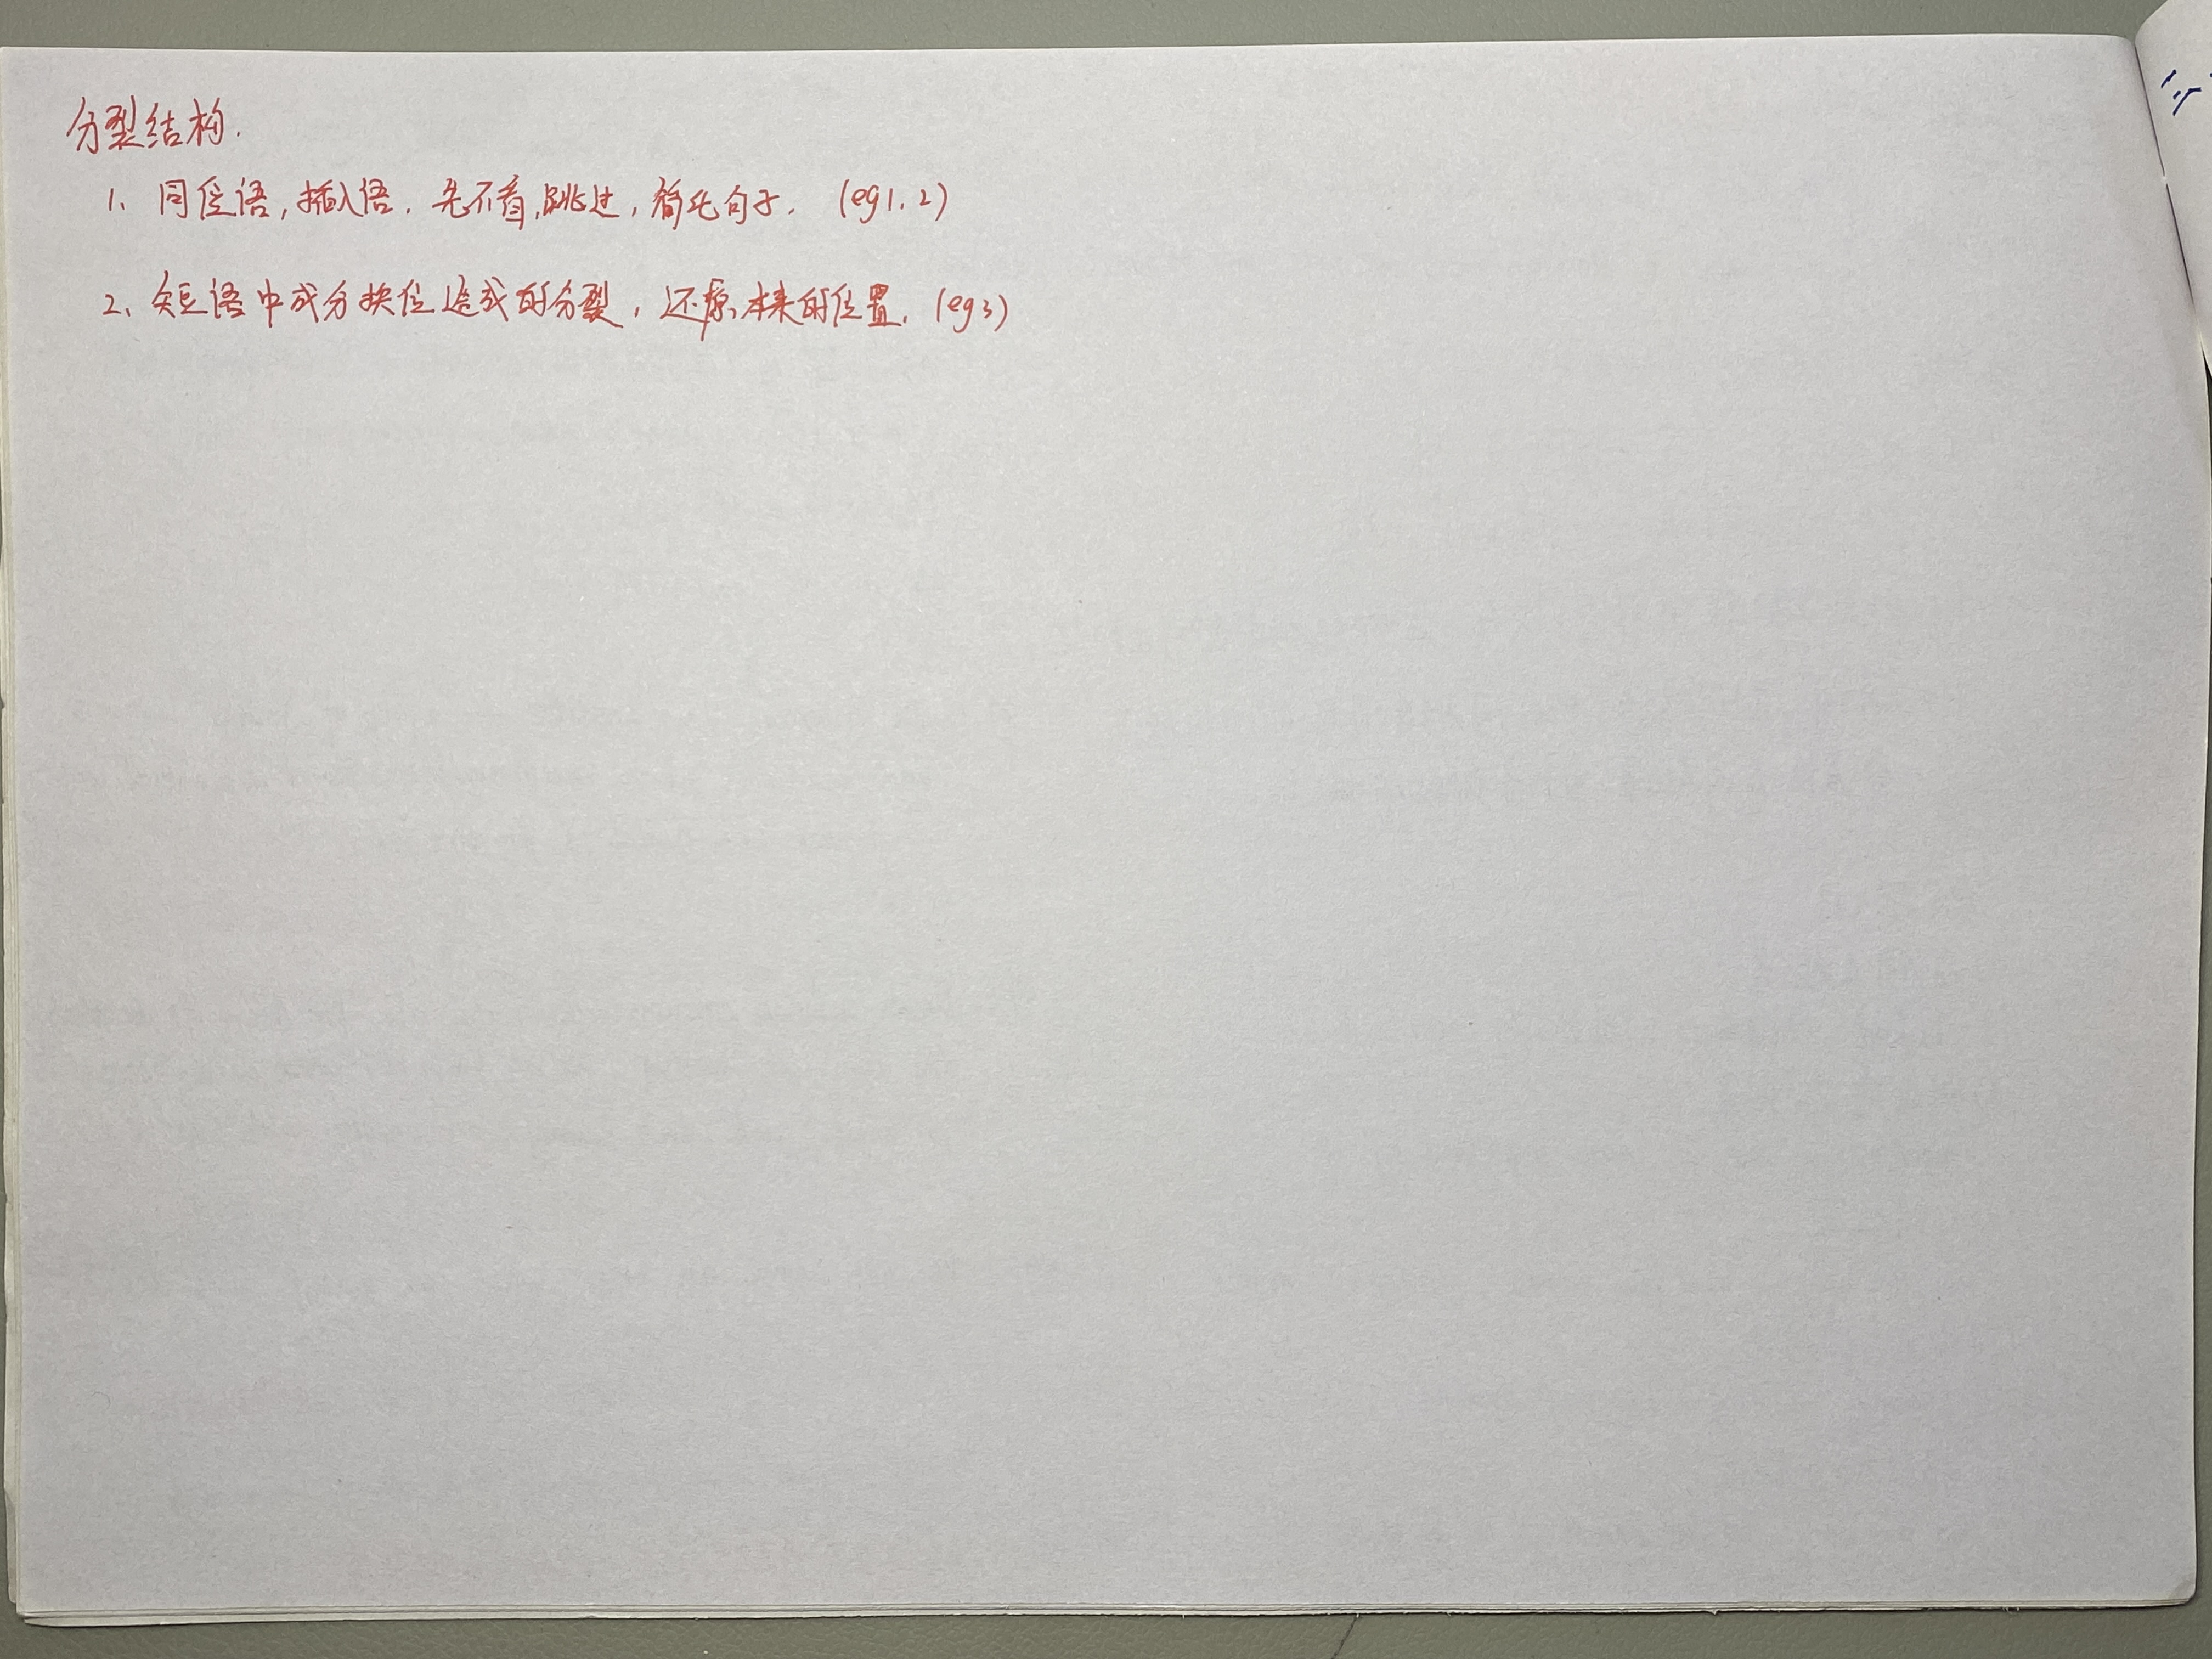 分裂结构.
1、同位语,插入语.先不看,跳过,简化句子. (eg1.2)
2、短语中成分换位造成的分裂,还原本来的位置. (eg3)